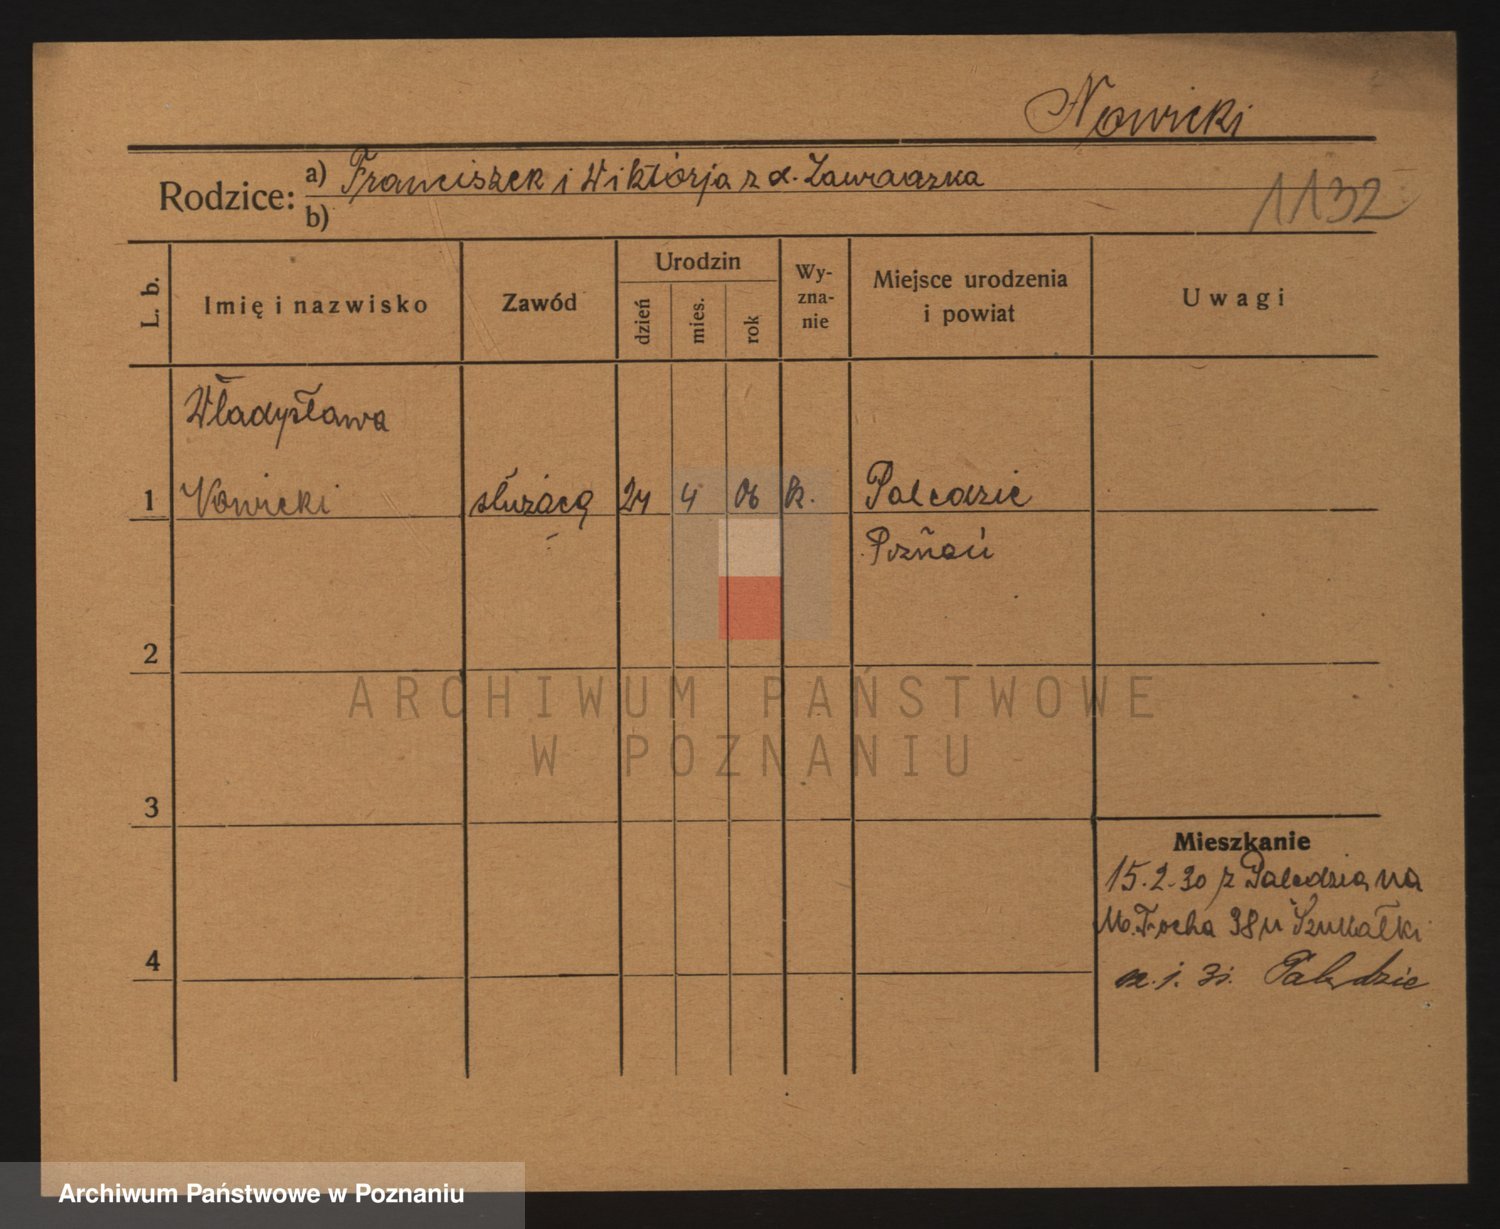 Nowicki
Rodzice: a) Franciszek i Wiktorja z d.
b)
1132
L. b.
Imię i nazwisko
Zawód
Urodzin
dzień
mies.
rok
Wy-
zna-
nie
Miejsce urodzenia
i powiat
Uwagi
Władysława
1 Nowicki służącą 24 4 06 k. Palędzie
Poznań
2
ARCHIWUM PAŃSTWOWE
W POZNANIU
3
Mieszkanie
15.2.30 z Palędzia na
M. Focha 38 u Szukałki
31. Palędzie
4
Archiwum Państwowe w Poznaniu